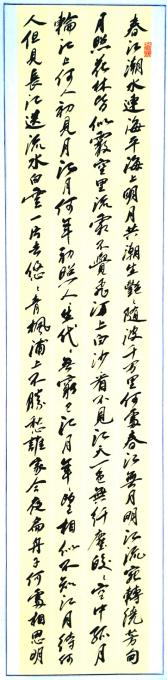 春江潮水連海平海上明月共潮生艷々隨波千万里何處春江無月明江流宛轉繞芳甸
月照花林皆似霰空里流霜不覺飛汀上白沙看不見江天一色無纤塵皎々空中孤月
輪江上何人初見月江月何年初照人生代々無窮已江月年望相似不知江月待何
人但見長江送流水白雲一片去悠々青楓浦上不勝愁誰家今夜扁舟子何處相思明